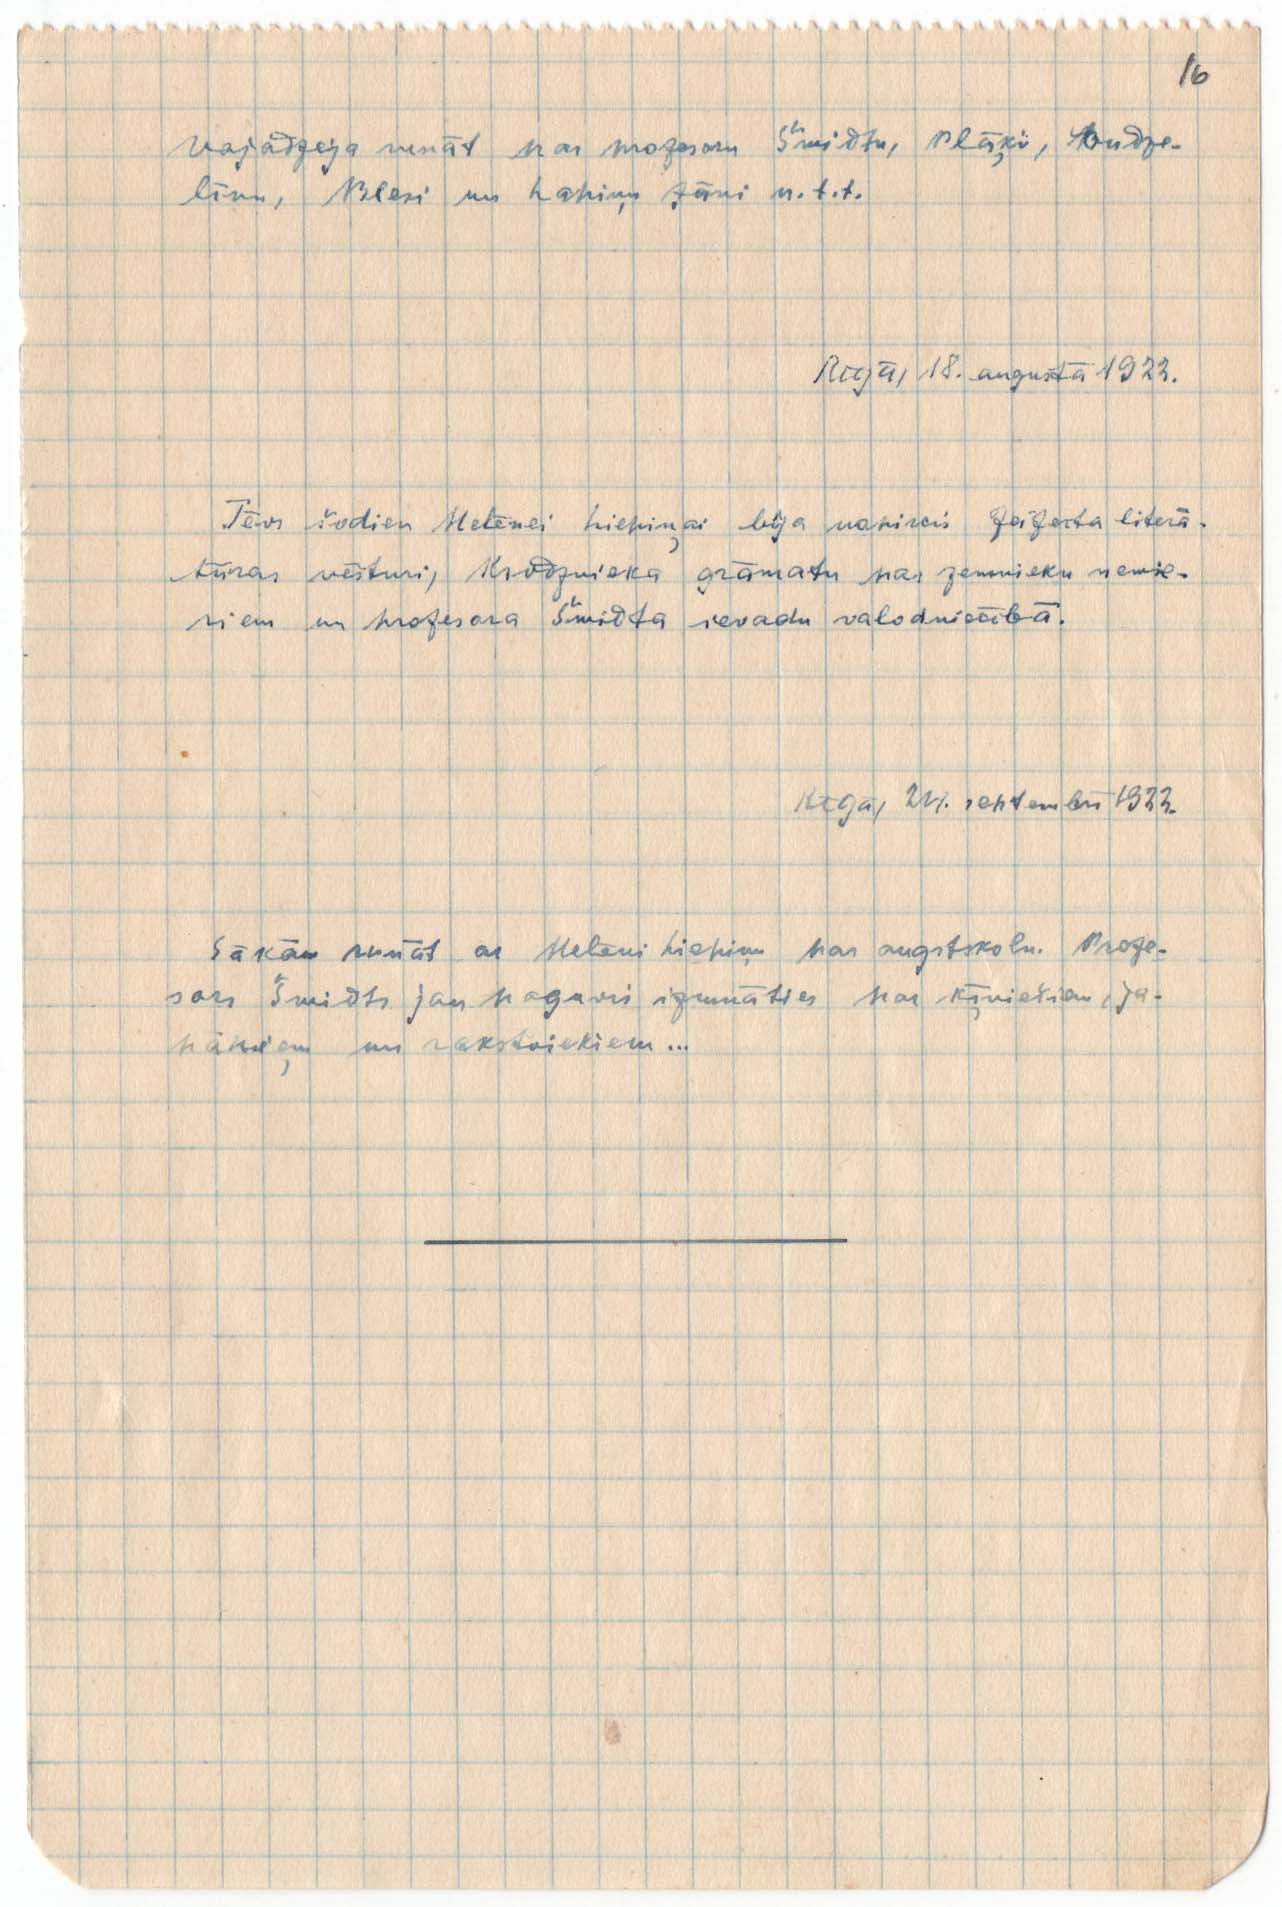 16
Vajadzēja runāt par profesoru Šmidtu, Plāķi, Endze-
līnu, Blesi un Lapiņu Jāni u.t.t.
Rīgā, 18. augustā 1922.
Tēvs šodien Helēnei Liepiņai bija nopircis Zeiferta literā-
tūras vēsturi, Krodznieka grāmatu par zemnieku nemie-
riem un profesora Šmidta ievadu valodniecībā.
Rīgā, 21. septembrī 1922.
Sākām runāt ar Helēni Liepiņu par augstskolu. Profe-
sors Šmidts jau paguvis izrunāties par ķīniešiem, ja-
pāņiem un rakstniekiem...